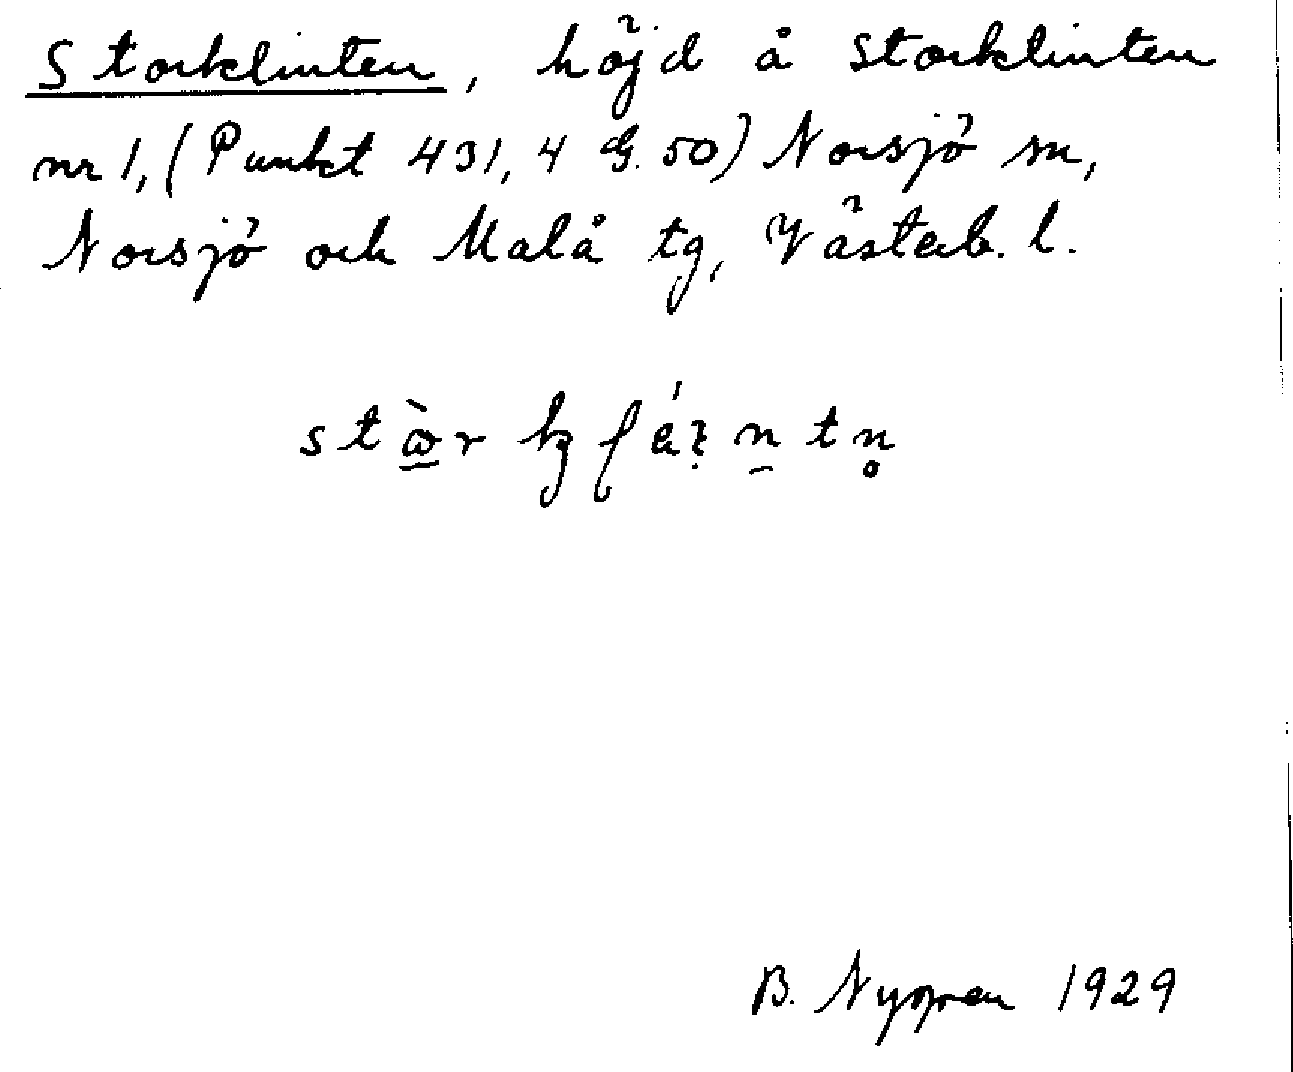 Storklinten, höjd å Storklinten
nr 1, (Punkt 431, 4 G. 50) Norsjö sn,
Norsjö och Malå tg, Västerb. l.
B. Nygren 1929